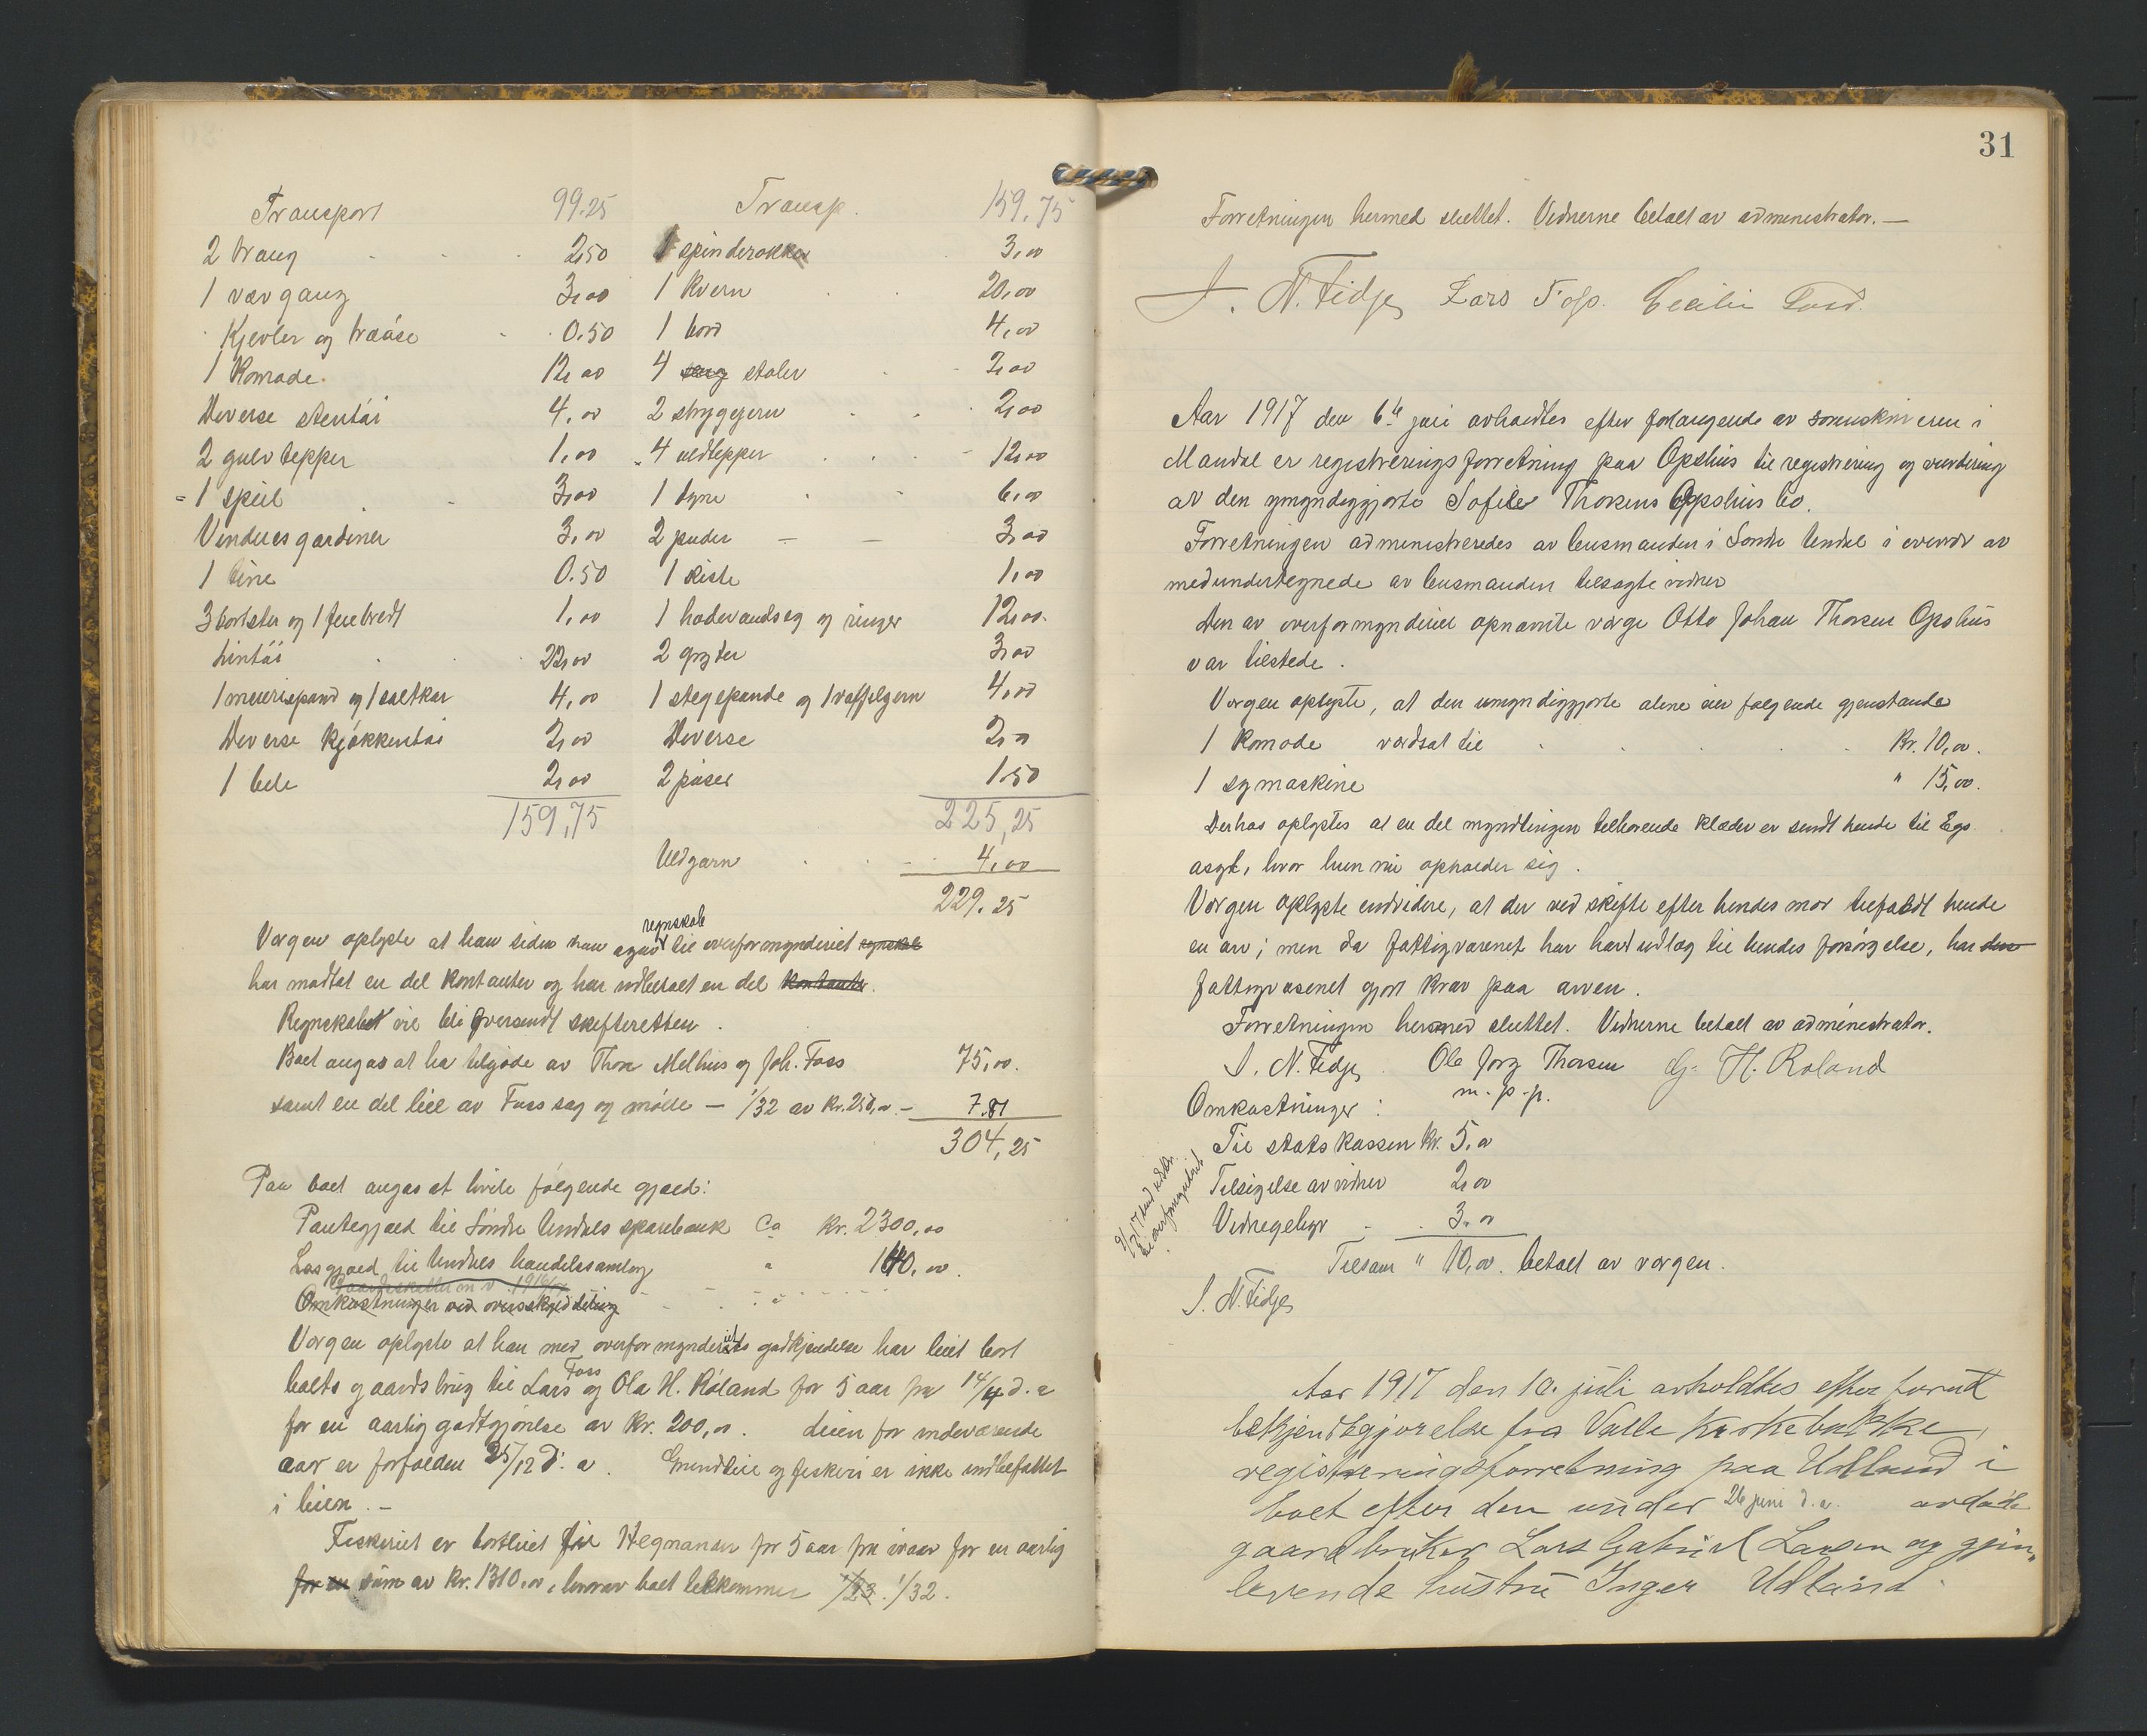 Transport 99.25
2 traug 2,50
1 vævgang 3,00
Kjevler og
0.50
1 Komode 12,00
Diverse stentøi 4,00
2 gulvtepper 1,00
1 speil 3,00
Vinduesgardiner 3,00
1 tine 0.50
3 børster og 1 1,00
Lintøi 22,00
1 meierispand og 1 saltkar 4,00
Diverse kjøkkentøi 2,00
1 2,00
159,75
Transp. 159,75
1 spinderokker 3,00
1 Kvern 20,00
1 bord 4,00
4 seng stoler 2,00
2 strygejern 2,00
4 uldtepper 12,00
1 dyne 6,00
2 puder 3,00
1 kiste 1,00
1 og ringer 12,00
2 gryder 3,00
1 stegepande og 1 vaffeljern 4,00
Diverse 2,-
2 1.50
225,25
Uldgarn 4,00
229,25
regnskab
Vergen oplyste at han siden han avgav til overformynderiet regnskab
har modtat en del kontanter og har utbetalt en del kontanter.
Regnskabet vil bli oversendt skifteretten.
Boet angas at ha tilgode av Thore Melhus og Joh. Foss 75,00.
samt en del leie av Foss sag og mølle – 1/32 av Kr. 250,00 – 7.81
304,25
Paa boet angas at hvile følgende gjæld:
Pantegjæld til Søndre Undals sparebank Ca Kr. 2300,00
Løsgjæld til Undals handelssamlag " 140,00.
1916/17
Omkostninger ved
Vergen oplyste at han med overformynderiets godkjendelse har leiet bort
Foss
boets gaardsbrug til Lars og Ola H. Røland for 5 aar fra 14/4 d. a
for en aarlig godtgjørelse av Kr. 200,00. Leien for indeværende
aar er forfalden 25/12 d. a. Grundleie og fiskeri er ikke indbefattet
i leien. –
Fiskeriet er bortleiet til Hegnander for 5 aar fra ivaar for en aarlig
for en sum av Kr. 1310,00, hvorav boet tilkommer 1/23. 1/32.
31
Forretningen hermed sluttet. Vidnerne betalt av administrator. –
S. N. Fidje Lars Foss. Cecilie
Aar 1917 den 6te juli avholdtes efter forlangende av sorenskriveren i
Mandal er registreringsforretning paa Opshus til registrering og vurdering
av den umyndiggjorte Sofie Thorsens Opshus bo.
Forretningen administreredes av lensmanden i Søndre Undal i overvær av
medundertegnede av lensmanden tilsagte vidner
Den av overformynderiet opnævnte verge Otto Johan Thorsen Opshus
var tilstede.
Vergen oplyste, at den umyndiggjorte alene eier følgende gjenstande
1 Komode værdsat til Kr. 10,00.
1 symaskine " 15,00.
Derhos oplystes at en del myndlingen tilhørende klæder er sendt hende til Egs
asyl, hvor hun nu opholder sig.
Vergen oplyste endvidere, at der ved skifte efter hendes mor tilfaldt hende
en arv; men da fattigvæsenet har havt utlæg til hendes forsørgelse, har den
fattigvæsenet gjort krav paa arven.
Forretningen hermed sluttet. Vidnerne betalt av administrator.
S. N. Fidje Ole Jørg Thorsen G. H. Roland
m. p. p.
Omkostninger:
Til statskassen Kr. 5,00
Tilsigelse av vidner 2,00
Vidnegebyr 3,00
Tilsam " 10,00. betalt av vergen.
S. N. Fidje
Aar 1917 den 10. juli avholdtes efter forut
bekjendtgjørelse fra Valle Kirkebakke,
registreringsforretning paa Udland i
boet efter den under 26 juni d. a. avdøde
gaardbruker Lars Gabriel Larsen og gjen-
levende hustru Inger Udland.